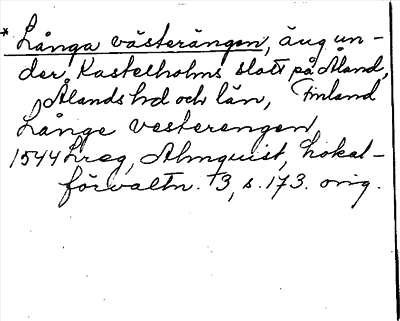 * Långa västerängen, äng un-
der Kastelholms slott på Åland,
Ålands hd och län, Finland
Långe vesterengen
1544 Lreg, Almquist, Lokal-
förvaltn. 3, s. 173. orig.